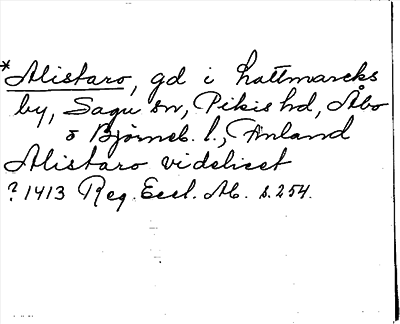 *Alistaro, gd i Lattmarcks
by, Sagu sn, Pikis hd, Åbo
o Björneb. l., Finland
Alistaro videlicet
? 1413 Reg. Eccl. Ab. s. 254.